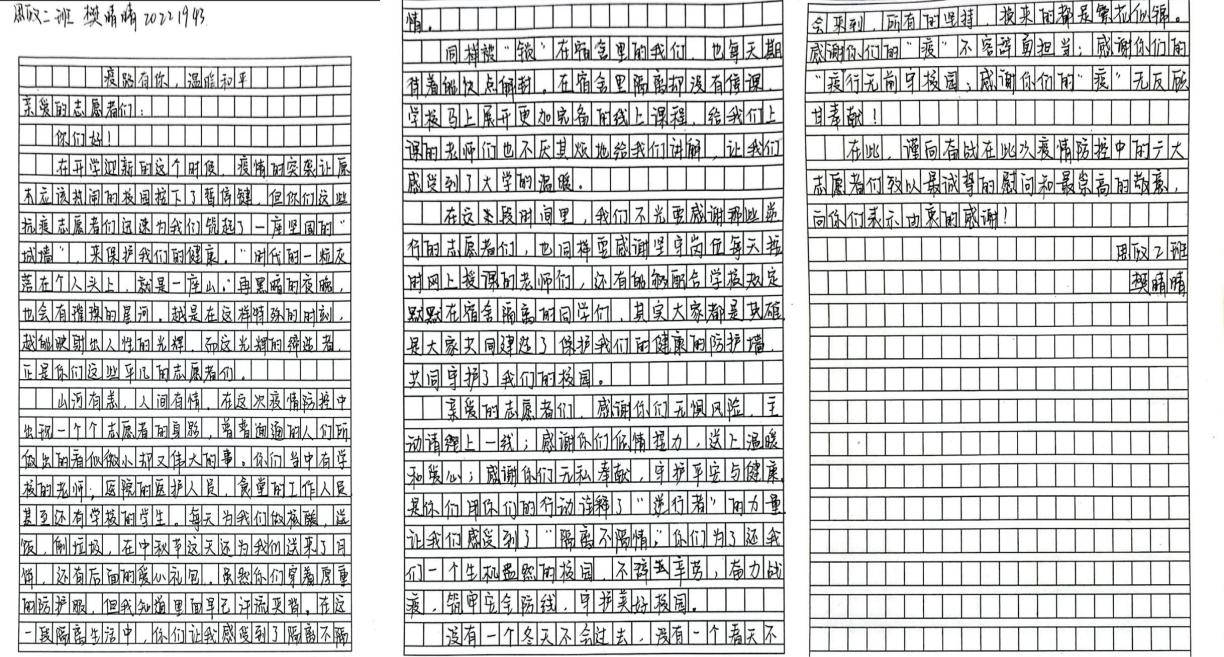 思政二班 樊晴晴 20221943
疫路有你，温暖和平
亲爱的志愿者们：
你们好！
在开学迎新的这个时候，疫情的突袭让原
本应该热闹的校园按下了暂停键，但你们这些
抗疫志愿者们迅速为我们筑起了一座坚固的“
城墙”，来保护我们的健康。“时代的一粒灰
落在个人头上，就是一座山。”再黑暗的夜晚，
也会有璀璨的星河。越是在这样特殊的时刻，
越能映射出人性的光辉，而这光辉的缔造者，
正是你们这些平凡的志愿者们。
山河有恙，人间有情。在这次疫情防控中
出现一个个志愿者的身影，普普通通的人们所
做出的看似微小却又伟大的事。你们当中有学
校的老师；医院的医护人员，食堂的工作人员
甚至还有学校的学生。每天为我们做核酸，送
饭，倒垃圾，在中秋节这天还为我们送来了月
饼，还有后面的爱心礼包。虽然你们穿着厚重
的防护服，但我知道里面早已汗流夹背。在这
一段隔离生活中，你们让我感受到了隔离不隔
情。
同样被“锁”在宿舍里的我们，也每天期
待着能快点解封。在宿舍里隔离却没有停课，
学校马上展开更加完备的线上课程，给我们上
课的老师们也不厌其烦地给我们讲解，让我们
感受到了大学的温暖。
在这类段时间里，我们不光要感谢那些逆
行的志愿者们，也同样要感谢坚守岗位每天按
时网上授课的老师们，还有能够配合学校规定
默默在宿舍隔离的同学们，其实大家都是英雄
是大家共同建造了保护我们的健康的防护墙，
共同守护了我们的校园。
亲爱的志愿者们，感谢你们无惧风险，主
动请缨上一线；感谢你们倾情接力，送上温暖
和爱心；感谢你们无私奉献，守护平安与健康
是你们用你们的行动诠释了“逆行者”的力量
让我们感受到了“隔离不隔情。”你们为了还我
们一个生机盎然的校园，不辞辛劳，奋力战
疫，筑牢安全防线，守护美好校园。
没有一个冬天不会过去，没有一个春天不
会来到，所有的坚持，换来的都是繁花似锦。
感谢你们的“疫”不容辞勇担当；感谢你们的
“疫行无前守校园；感谢你们的“疫”无反顾
甘奉献！
在此，谨向奋战在此次疫情防控中的广大
志愿者们致以最诚挚的慰问和最崇高的敬意，
向你们表示由衷的感谢！
思政2班
樊晴晴